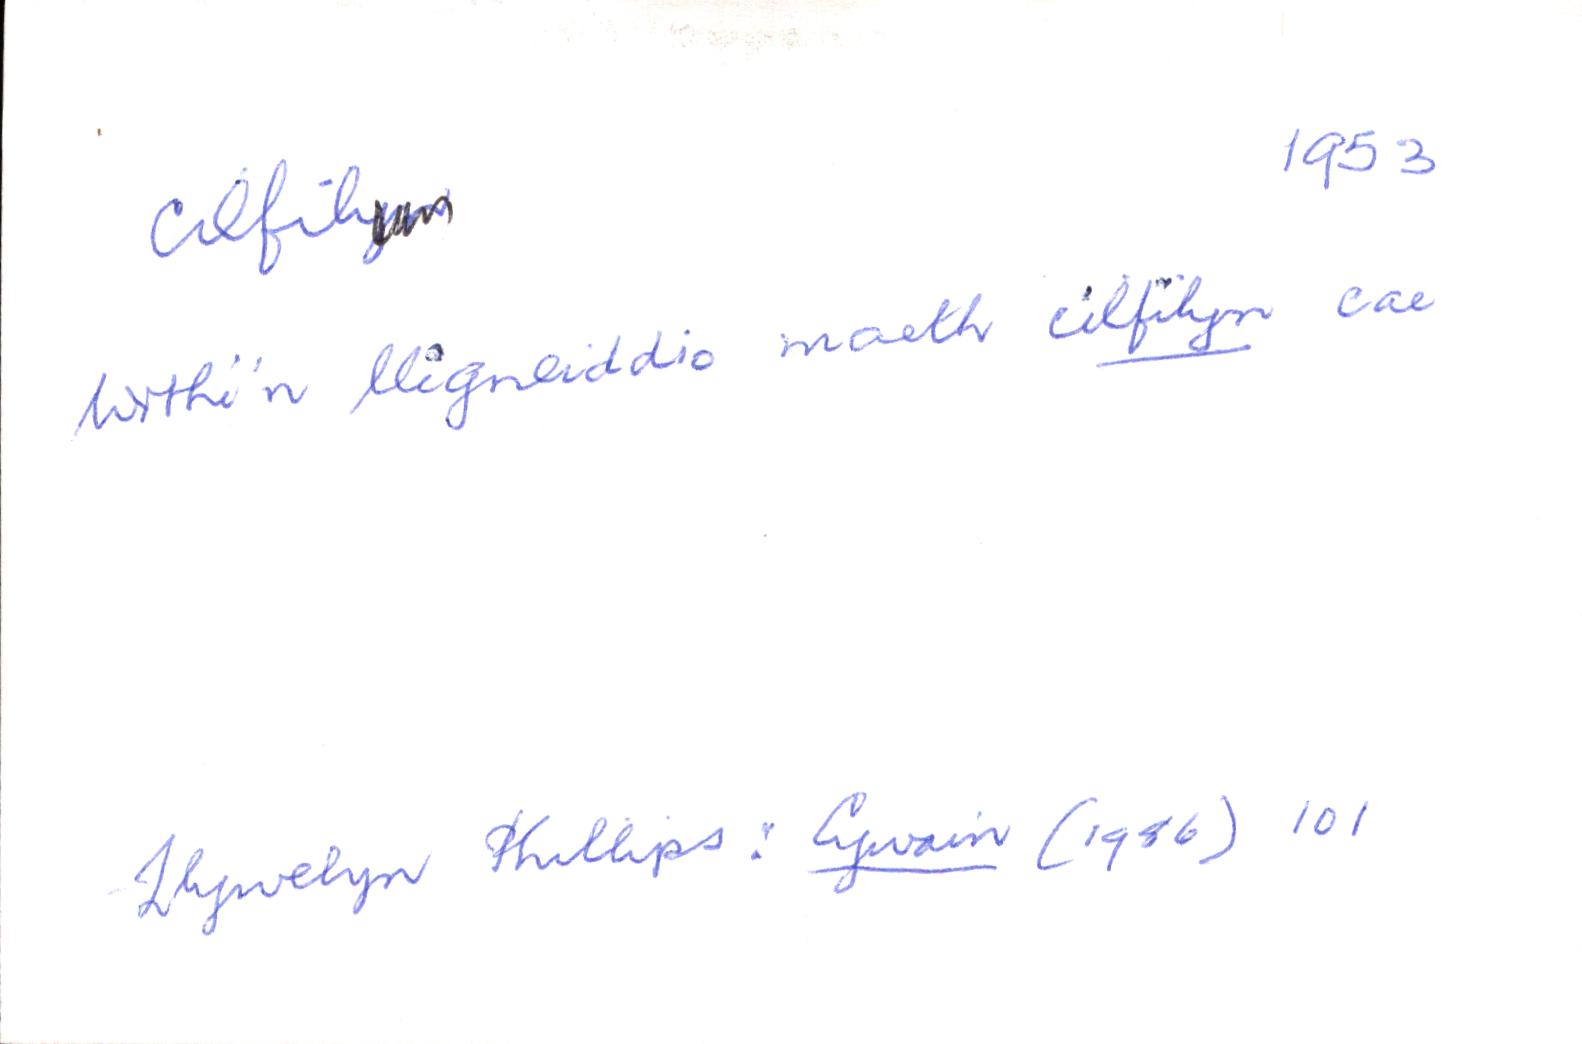 1953
cilfilyn
Wrthi'n lligneiddio maeth cilfilyn cae
Llywelyn Phillips: Cywain (1986) 101